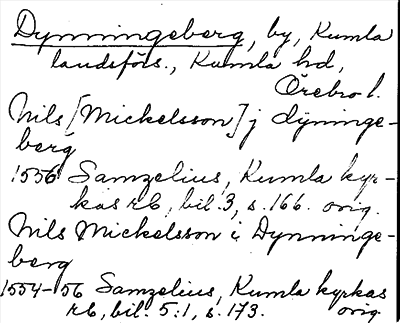 Dynningeberg, by, Kumla
landsförs., Kumla hd,
Örebro l.
Nils [Mickelsson] j dyninge-
berg
1556 Samzelius, Kumla kyr-
kas rb, bil. 3, s. 166. orig.
Nils Mickelsson i Dynninge-
berg
1554-56 Samzelius, Kumla kyrkas
rb, bil. 5:1, s. 173. orig.